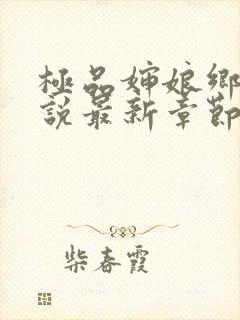 極品婶娘鄉
說最新章節
柴春霞